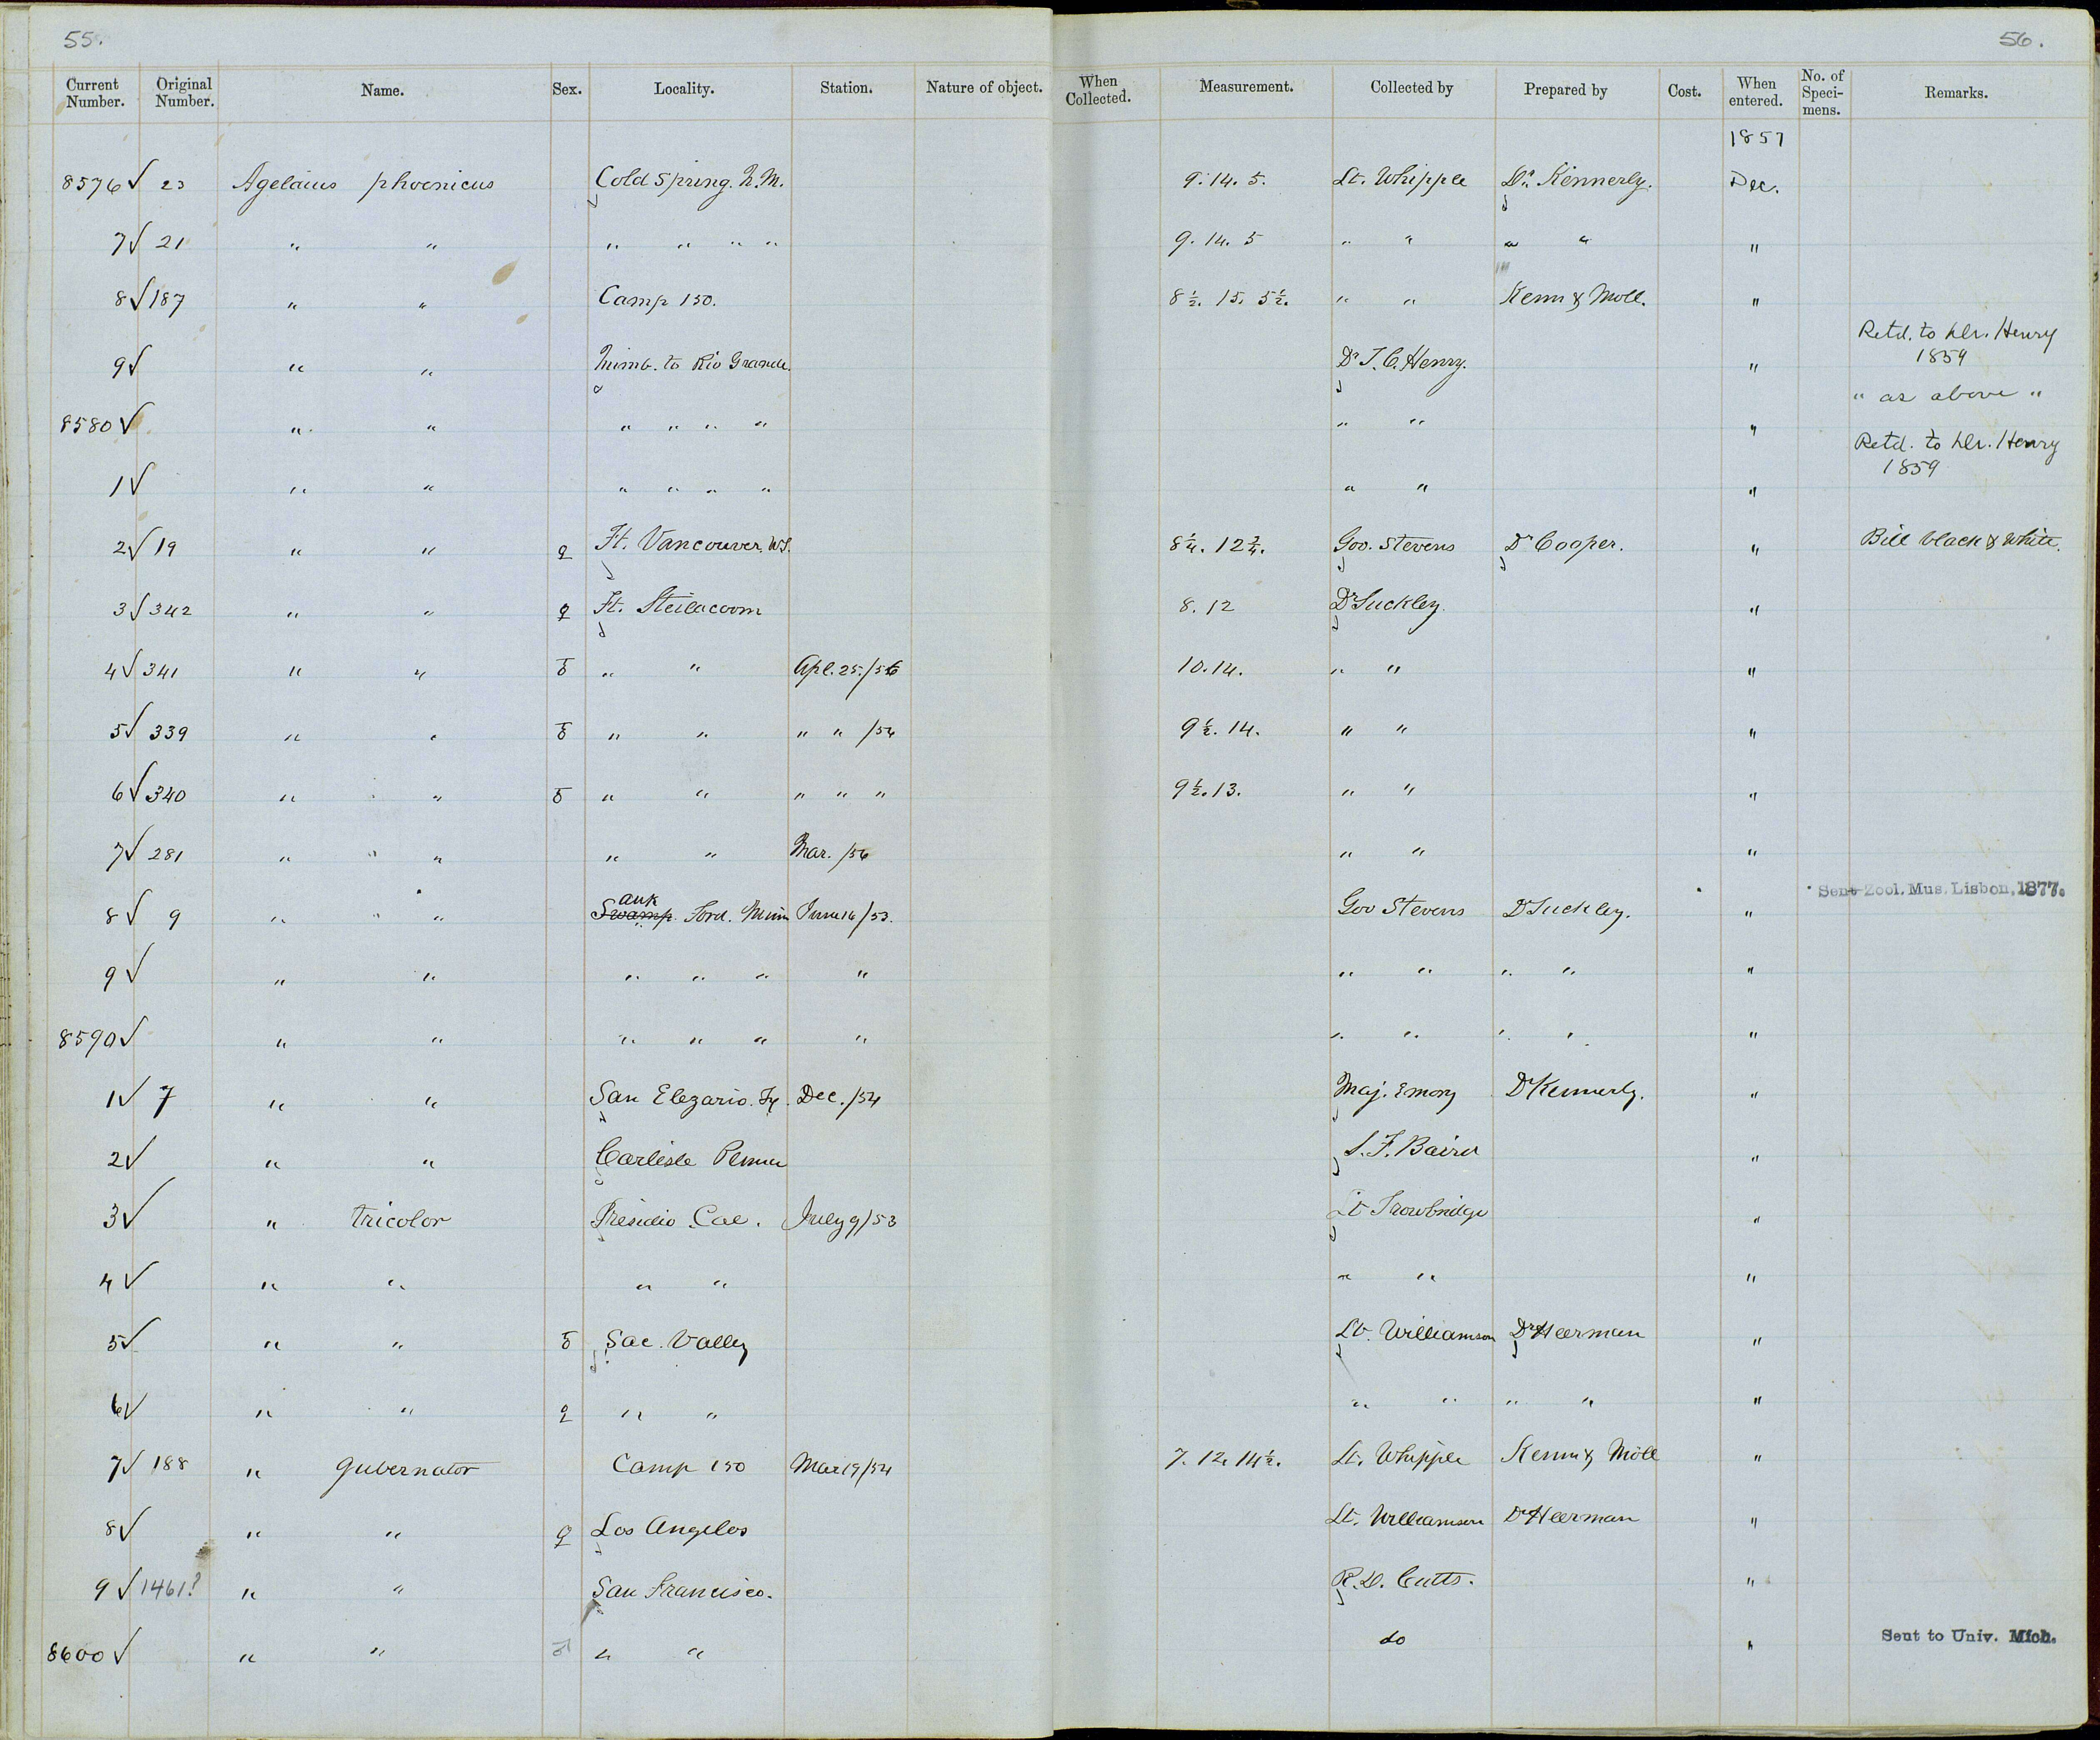 55.
56.
Current Number. Original Number. Name. Sex. Locality. Station. Nature of object. When Collected. Measurement. Collected by Prepared by Cost. When entered. No. of Specimens. Remarks.
1857
8576 √ 23 Agelaius phoenicus Cold Spring. N.M. 9. 14. 5. Lt. Whipple Dr. Kennerly. Dec.
7 √ 21 " " " " " " 9. 14. 5 " " " " "
8 √ 187 " " Camp 150. 8 1/2. 15. 5 1/2. " " Kenn & Moll. "
9 √ " " Mimb. to Rio Grande. Dr T. C. Henry. " Retd. to Dr. Henry 1859
8580 √ " " " " " " " " " " as above "
1 √ " " " " " " " " " Retd. to Dr. Henry 1859
2 √ 19 " " ♀ Ft. Vancouver, W.T. 8 1/4. 12 3/4. Gov. Stevens Dr Cooper. " Bill black & white.
3 √ 342 " " ♀ Ft. Steilacoom 8. 12 Dr Suckley. "
4 √ 341 " " ♂ " " Apl. 25. /56 10. 14. " " "
5 √ 339 " " ♂ " " " " /56 9 1/2. 14. " " "
6 √ 340 " " ♂ " " " " " 9 1/2. 13. " " "
7 √ 281 " " " " Mar. /56 " " "
8 √ 9 " " Swamp auk Ford. Minn June 16/53. Gov Stevens Dr Suckley. " Sent Zool. Mus. Lisbon, 1877.
9 √ " " " " " " " " " " "
8590 √ " " " " " " " " " " "
1 √ 7 " " San Elezario. Tx. Dec. /54 Maj. Emory Dr Kennerly. "
2 √ " " Carlisle Penna S. F. Baird "
3 √ " tricolor Presidio. Cal. July 9/53 Lt Trowbridge "
4 √ " " " " " " "
5 √ " " ♂ Sac. Valley Lt. Williamson Dr Heerman "
6 √ " " ♀ " " " " " " "
7 √ 188 " gubernator Camp 150 Mar 19/54 7. 12. 14 1/2. Lt. Whipple Kenn & Möll "
8 √ " " ♀ Los Angelos Lt. Williamson Dr Heerman "
9 √ 1461? " " San Francisco. R. D. Cutts. "
8600 √ " " ♂ " " do " Sent to Univ. Mich.